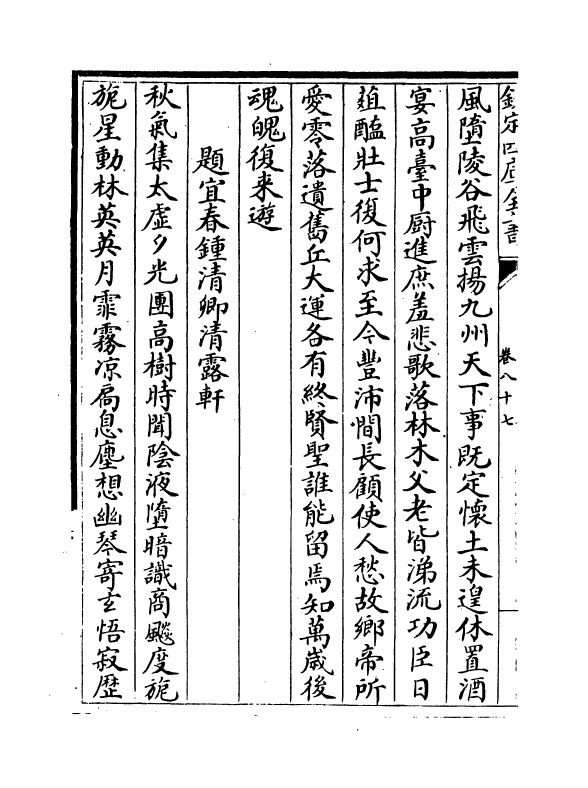 欽定四庫全書
卷八十七
風墮陵谷飛雲揚九州天下事既定懷土未遑休置酒
宴高臺中厨進庶羞悲歌落林木父老皆涕流功臣日
葅醢壯士復何求至今豐沛間長顧使人愁故鄉帝所
愛零落遺舊丘大運各有終賢聖誰能留焉知萬歲後
魂魄復来遊
題宜春鍾清卿清露軒
秋氣集太虛夕光團高樹時聞陰液墮暗識商飈度旎
旎星動林英英月霏霧凉扃息塵想幽琴寄玄悟寂歴